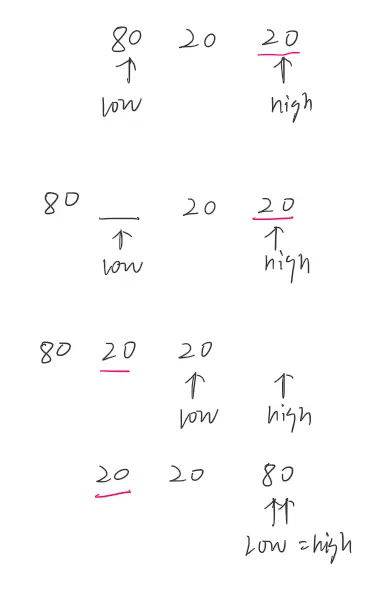 80 20 20
low high
80 20 20
low high
80 20 20
low high
20 20 80
low = high